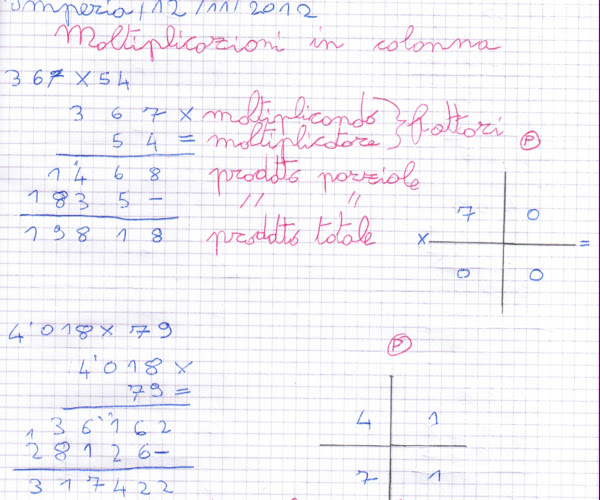 Imperia, 12/11/2012
Moltiplicazioni in colonna
367 x 54
3 6 7 x moltiplicando } fattori
5 4 = moltiplicatore
1 4 6 8 prodotto parziale
1 8 3 5 - // //
1 9 8 1 8 prodotto totale
P
7 0
x =
0 0
4'018 x 79
4'018 x
79 =
3 6 1 6 2
2 8 1 2 6 -
3 1 7 4 2 2
P
4 1
7 1